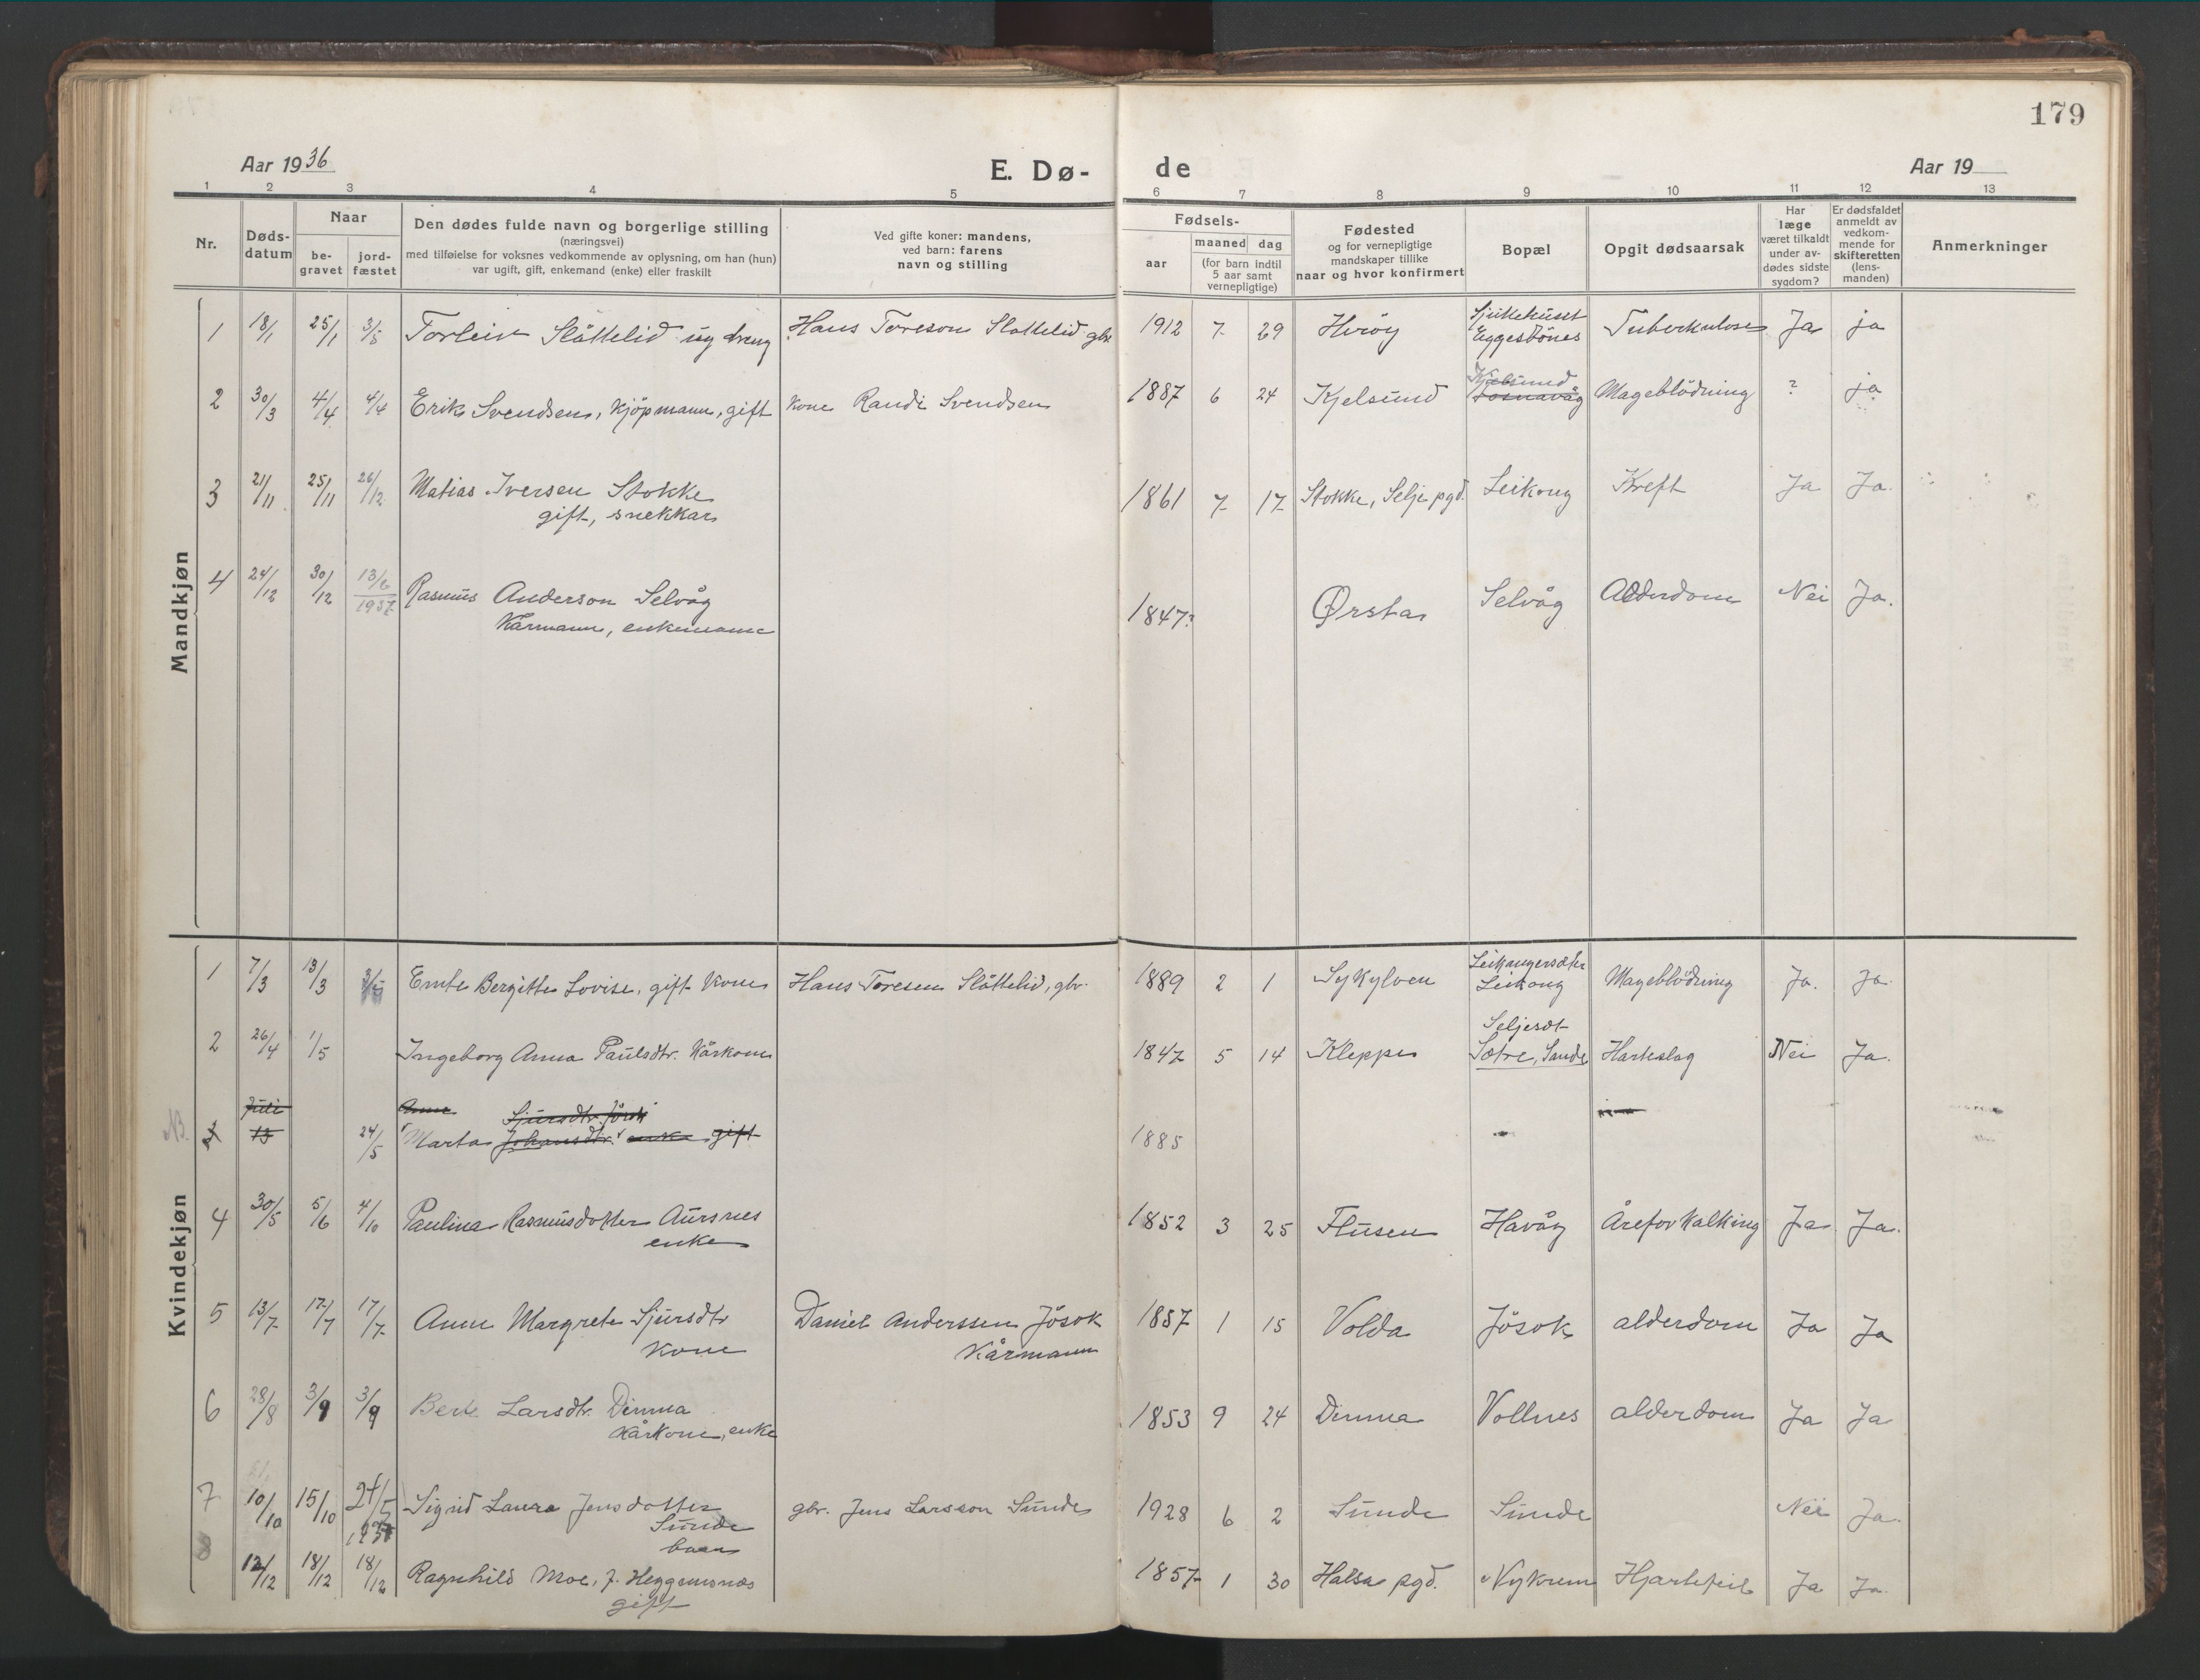 179
Aar 1936
E. Dø-
de
Aar 19
1 2 3 4 5 6 7 8 9 10 11 12 13
Nr.
Døds-
datum
Naar
be-
gravet
jord-
fæstet
Den dødes fulde navn og borgerlige stilling
(næringsvei)
med tilføielse for voksnes vedkommende av oplysning, om han (hun)
var ugift, gift, enkemand (enke) eller fraskilt
Ved gifte koner: mandens,
ved barn: farens
navn og stilling
Fødsels-
aar
maaned dag
(for barn indtil
5 aar samt
vernepligtige)
Fødested
og for vernepligtige
mandskaper tillike
naar og hvor konfirmert
Bopæl
Opgit dødsaarsak
Har
læge
været tilkaldt
under av-
dødes sidste
sygdom?
Er dødsfaldet
anmeldt av
vedkom-
mende for
skifteretten
(lens-
manden)
Anmerkninger
Mandkjøn
1 18/1 25/1 3/5 Torleiv Slåttelid ug dreng Hans Toreson Slåttelid gbr 1912 7 29 Herøy Sjukehuset
Eggesbönes Tuberkulose Ja ja
2 30/3 4/4 4/4 Erik Svendsen, Kjöpmann, gift Kone Randi Svendsen 1887 6 24 Kjelsund Kjelsund
Fosnavåg Mageblödning ? ja
3 21/11 25/11 26/12 Matias Iversen Stokke
gift, snekkar
1861 7 17 Stokke, Selje pgd. Leikong Kreft Ja Ja.
4 24/12 30/12 13/6
1937 Rasmus Anderson Selvåg
Kårmann, enkemann
1847? Ørsta Selvåg Alderdom Nei Ja.
Kvindekjøn
1 7/3 13/3 3/5 Emte Bergitte Lovise, gift Kone Hans Toresen Slåttelid, gbr. 1889 2 1 Sykylven Leikangersæter
Leikong Mageblödning Ja. Ja.
2 26/4 1/5 Ingeborg Anna Paulsdtr. Kårkone 1847 5 14 Kleppe Seljesæt
Sætre, Sande Harteslag Nei Ja.
NB. 3 Juli
13 24/5 Anne Sjursdtr. Jösok
Marta Johansdtr. enke gift 1885
4 30/5 5/6 4/10 Paulina Rasmusdotter Aursnes
enke
1852 3 25 Flusen Havåg Åreforkalking Ja Ja.
5 13/7 17/7 17/7 Anne Margrete Sjursdtr
Kone
Daniel Anderssen Jösok
Kårmann
1857 1 15 Volda Jösok alderdom Ja Ja
6 28/8 3/9 3/9 Berte Larsdtr. Dimma
Kårkone, enke
1853 9 24 Dimma Vollnes alderdom Ja Ja
7 10/10 15/10 24/5
1937 Sigrid Laura Jensdotter
Sunde
barn
gbr. Jens Larsson Sunde 1928 6 2 Sunde Sunde Nei Ja.
8 12/12 18/12 18/12 Ragnhild Moe, f. Heggemsnes
gift
1857 1 30 Halsa pgd. Nykrem Hjartefeil Ja Ja.